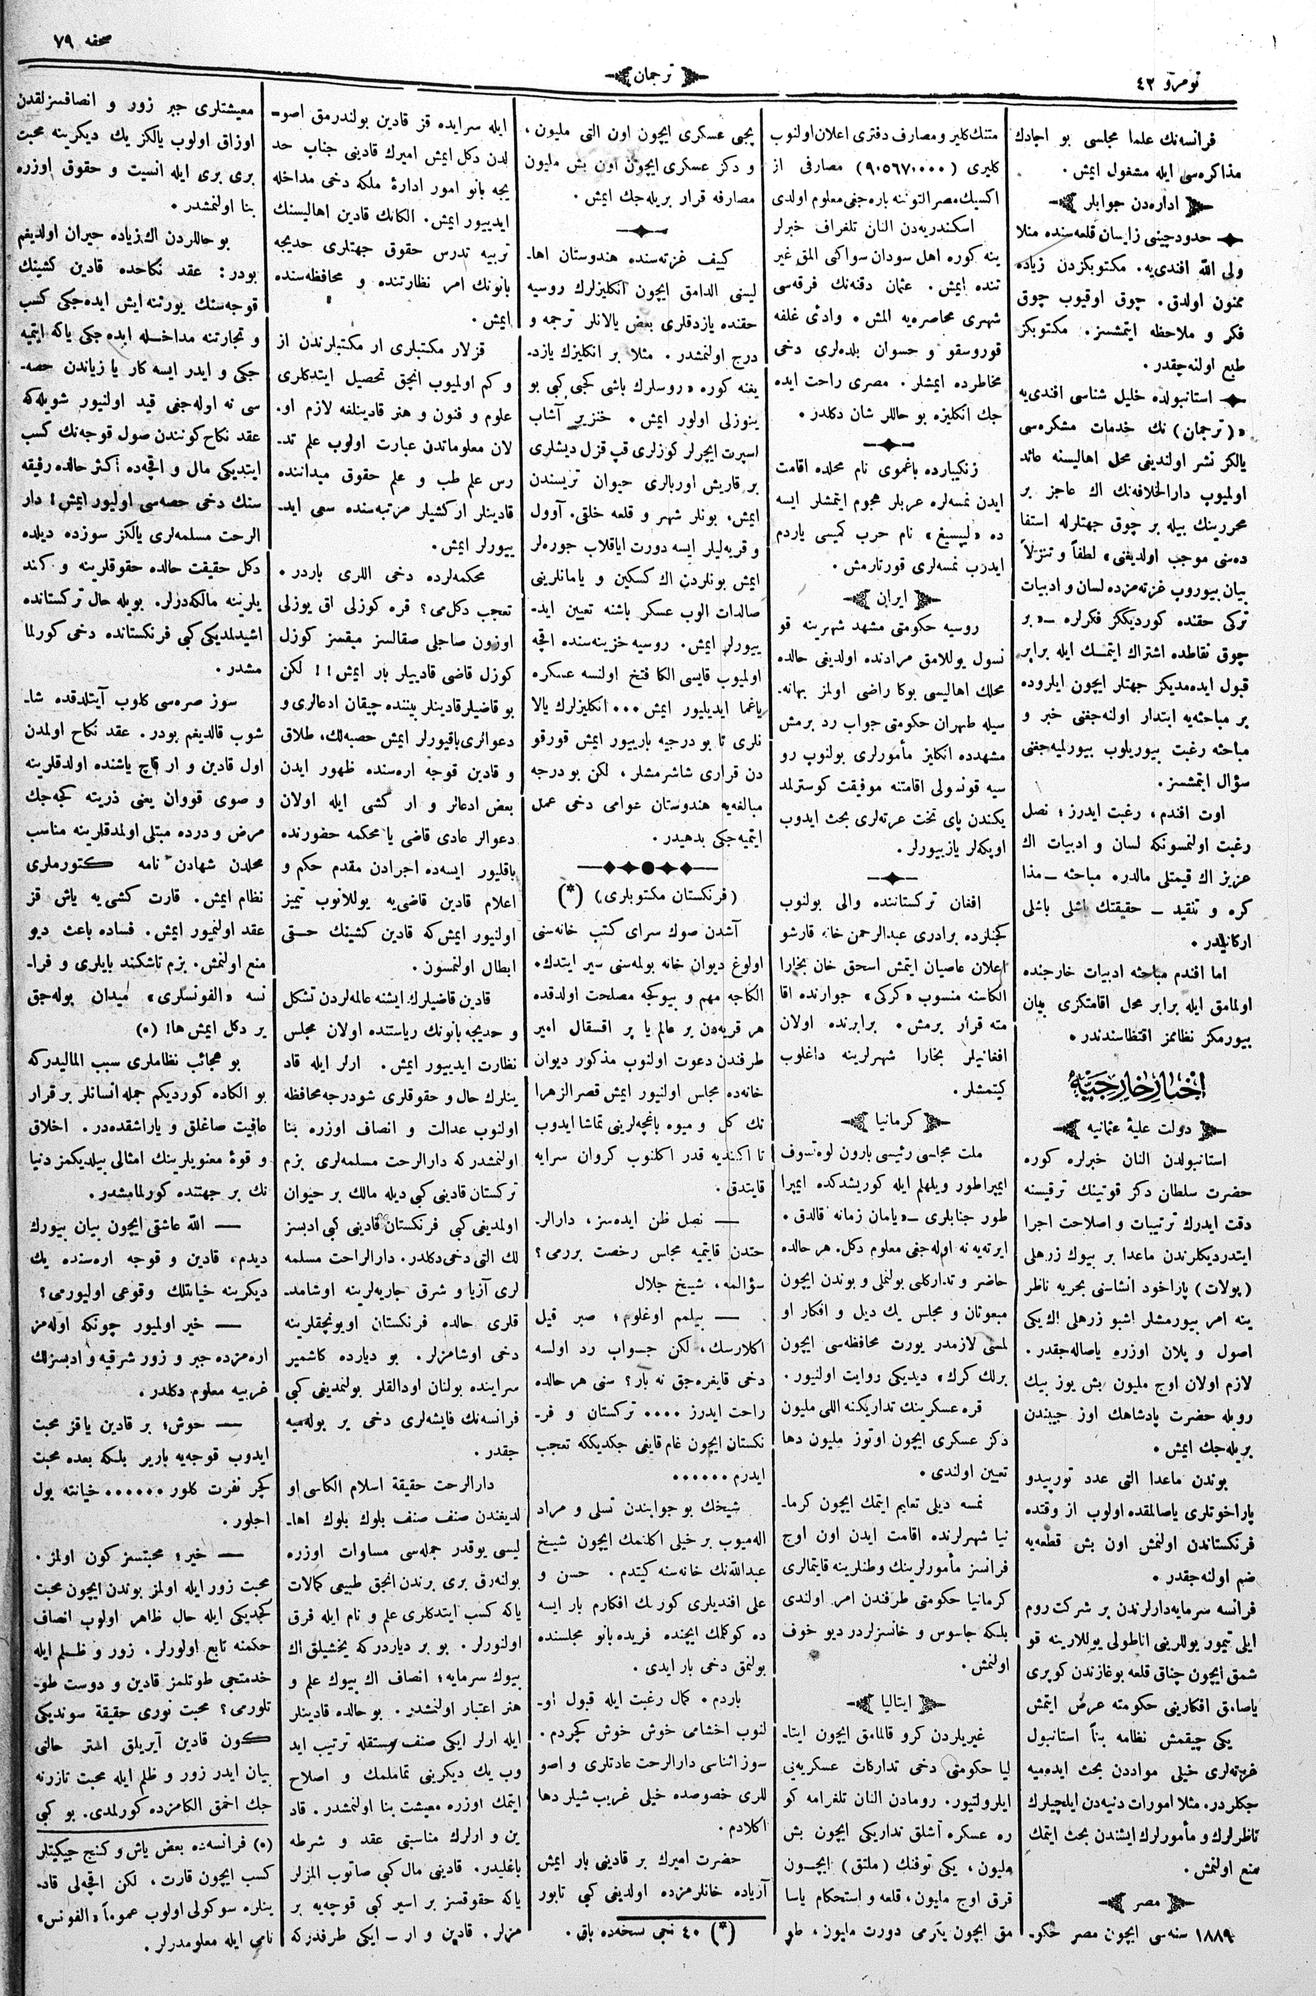 نومرو ٤٢
ترجمان
صحفه ٧٩
فرانسه‌نك علما مجلسی بو اجادك
مذاكره‌سی ایله مشغول ایمش .
اداره‌دن جوابلر
حدود چینی زایسان قلعه‌سنده منلا
ولی الله افندی‌یه. مكتوبكزدن زیاده
ممنون اولدق. چوق اوقیوب چوق
فكر و ملاحظه ایتمشسز. مكتوبكز
طبع اولنه‌جقدر.
استانبولده خلیل شناسی افندی‌یه
«(ترجمان) نك خدمات مشكره‌سی
یالكز نشر اولندیغی محل اهالیسنه عائد
اولمیوب دارالخلافه‌نك اك عاجز بر
محررینك بیله بر چوق جهتلرله استفا
ده‌سنی موجب اولدیغی» لطفاً و تنزلاً
بیان بیوروب غزته‌مزده لسان و ادبیات
تركی حقنده كوردیككز فكرلره ــ «بر
چوق نقاطده اشتراك ایتمك ایله برابر
قبول ایده‌مدیكز جهتلر ایچون ایلروده
بر مباحثه‌یه ابتدار اولنه‌جغنی خبر و
مباحثه رغبت بیوریلوب بیورلمیه‌جغنی
سؤال ایتمشسز.
اوت افندم ، رغبت ایدرز ؛ نصل
رغبت اولنمسونكه لسان و ادبیات اك
عزیز اك قیمتلی مالدره مباحثه ــ مذا
كره و تنقید ــ حقیقتك باشلی باشلی
اركانیدر .
اما افندم مباحثه ادبیات خارجنده
اولمامق ایله برابر محل اقامتكزی بیان
بیورمكز نظاممز اقتظاسندندر .
اخبار خارجیه
دولت علیهٔ عثمانیه
استانبولدن النان خبرلره كوره
حضرت سلطان دكز قوتینك ترقیسنه
دقت ایدرك ترتیبات و اصلاحت اجرا
ایتدردیكلرندن ماعدا بر بیوك زرهلی
(پولات) پاراخود انشاسنی بحریه ناظر
ینه امر بیورمشلر. اشبو زرهلی اك یكی
اصول و پلان اوزره یاصاله‌جقدر.
لازم اولان اوچ ملیون بش یوز بیك
روبله حضرت پادشاهك اوز جیبندن
بریله‌جك ایمش .
بوندن ماعدا التی عدد تورپیدو
پاراخوتلری یاصالمقده اولوب از وقتده
فرنكستاندن اولنمش اون بش قطعه‌یه
ضم اولنه‌جقدر .
فرانسه سرمایه‌دارلرندن بر شركت روم
ایلی تیمور یوللرینی اناطولی یوللارینه قو
شمق ایچون چناق قلعه بوغازندن كوپری
یاصامق افكارینی حكومته عرض ایتمش
یكی چیقمش نظامه بناً استانبول
غزته‌لری خیلی مواددن بحث ایده‌میه
جكلردر. مثلا امورات دنیه‌دن ایلچیلرك
ناظرلرك و مأمورلرك ایشندن بحث ایتمك
منع اولنمش .
مصر
١٨٨٩ سنه‌سی ایچون مصر حكو-
متنك كلیر و مصارف دفتری اعلان اولنوب
كلیری (٩٠٥٦٧٠٠٠٠) مصارفی از
اكسیك مصر التوننه باره‌جغی معلوم اولدی
اسكندریه‌دن النان تلغراف خبرلر
ینه كوره اهل سودان سواكی المق غیر
تنده ایمش. عثمان دقنه‌نك فرقه‌سی
شهری محاصره‌یه المش . وادئ غلفه
قوروسقو و حسوان بلده‌لری دخی
مخاطرده ایمشلر. مصری راحت ایده
جك انكلیزه بو حاللر شان دكلدر.
زنكیبارده باغموی نام محلده اقامت
ایدن نمسه‌لره عربلر هجوم ایتمشلر ایسه
ده «لیپسیغ» نام حرب كمیسی یاردم
ایدرب نمسه‌لری قورتارمش .
ایران
روسیه حكومتی مشهد شهرینه قو
نسول یوللامق مرادنده اولدیغی حالده
محلك اهالیسی بوكا راضی اولمز بهانه-
سیله طهران حكومتی جواب رد برمش
مشهدده انكلیز مأمورلری بولنوپ رو
سیه قونسولی اقامتنه موفیقت كوسترلمد
یكندن پای تخت غزته‌لری بحث ایدوب
اوپكه‌لر یازیورلر.
افغان تركستاننده والی بولنوب
كچنلرده برادری عبدالرحمن خانه قارشو
اعلان عاصیان ایتمش اسحق خان بخارا
الكاسنه منسوب «كركی» جوارنده اقا
مته قرار برمش . برابرنده اولان
افغانیلر بخارا شهرلرینه داغلوب
كیتمشلر.
كرمانیا
ملت مجلسی رئیسی بارون لوه‌تسوف
ایمپراطور ویلهلم ایله كوریشدكده ایمپرا
طور جنابلری ــ «یامان زمانه قالدق .
ایرته‌یه نه اوله‌جغی معلوم دكل. هر حالده
حاضر و تداركلی بولنملی و بوندن ایچون
مبعوثان و مجلس یك دیل و افكار او
لمسی لازمدر یورت محافظه‌سی ایچون
برلك كرك» دیدیكی روایت اولنیور.
قره عسكرینك تداریكنه اللی ملیون
دكز عسكری ایچون اوتوز ملیون دها
تعیین اولندی .
نمسه دیلی تعلیم ایتمك ایچون كرما-
نیا شهرلرنده اقامت ایدن اون اوچ
فرانسز مأمورلرینك وطنلرینه قایتمالری
كرمانیا حكومتی طرفندن امر اولندی
بلكه جاسوس و خائنسزلردر دیو خوف
اولنمش .
ایتالیا
غیریلردن كرو قالمامق ایچون ایتا-
لیا حكومتی دخی تداركات عسكریه‌یی
ایلرولتیور. رومادن النان تلغرامه كو
ره عسكره آشلق تداریكی ایچون بش
ملیون، یكی توفنك (ملتق) ایچــون
قرق اوچ ملیون، قلعه و استحكام یاسا
مق ایچون یكرمی دورت ملیون، طو
پجی عسكری ایچون اون التی ملیون ،
و دكز عسكری ایچون اون بش ملیون
مصارفه قرار بریله‌جك ایمش .
كییف غزته‌سنده هندوستان اها-
لیسنی الدامق ایچون انكلیزلرك روسیه
حقنده یازدقلری بعض یالانلر ترجمه و
درج اولنمشدر. مثلا بر انكلیزك یازد-
یغنه كوره «روسلرك باشی كجی كبی بو
ینوزلی اولور ایمش . خنزیر آشاب
اسپرت ایچرلر كوزلری قپ قزل دیشلری
بر قاریش اوربالری حیوان تریسندن
ایمش، بونلر شهر و قلعه خلقی. آوول
و قریه‌لیلر ایسه دورت ایاقلاب جوره‌لر
ایمش بونلردن اك كسكین و یامانلرینی
صالدات الوب عسكر باشنه تعیین اید-
ییورلر ایمش. روسیه خزینه‌سنده اقچه
اولمیوب قایسی الكا فتح اولنسه عسكره
یاغما ایدیلیور ایمش... انكلیزلرك یالا
نلری تا بو درجیه باریور ایمش قورقو
دن قراری شاشرمشلر ، لكن بو درجه
مبالغه‌یه هندوستان عوامی دخی عمل
ایتمیه‌جكی بدهیدر.
(فرنكستان مكتوبلری) (*)
آشدن صوك سرای كتب خانه‌سنی
اولوغ دیوان خانه بولمه‌سنی سیر ایتدك.
الكاجه مهم و بیوكجه مصلحت اولدقده
هر قریه‌دن بر عالم یا بر اقسقال امیر
طرفندن دعوت اولنوب مذكور دیوان
خانه‌ده مجلس اولنیور ایمش قصرالزهرا
نك كل و میوه باغچه‌لرینی تماشا ایدوب
تا اكندیه قدر اكلنوب كروان سرایه
قایتدق.
ــ نصل ظن ایده‌سز، دارالر-
حتدن قایتمیه مجلس رخصت بررمی؟
سؤالمه، شیخ جلال
ــ بیلمم اوغلوم ؛ صبر قیل
اكلارسك، لكن جواب رد اولسه
دخی قایغره‌جق نه بار؟ سنی هر حالده
راحت ایدرز .... تركستان و فر-
نكستان ایچون غام قایغی جكدیككه تعجب
ایدرم ......
شیخك بو جوابندن تسلی و مراد
اله‌میوب بر خیلی اكلانمك ایچون شیخ
عبداللهنك خانه‌سنه كیتدم . حسن و
علی افندیلری كورمك افكارم بار ایسه
ده كوكلك ایچنده فریده بانو مجلسنده
بولنمق دخی بار ایدی .
باردم . كمال رغبت ایله قبول او-
لنوب اخشامی خوش خوش كچردم .
سوز اثناسی دارالرحت عادتلری و اصو
للری خصوصده خیلی غریب شیلر دها
اكلادم .
حضرت امیرك بر قادینی بار ایمش
آزیاده خانلرمزده اولدیغی كبی تابور
(*) ٤٠ نجی نسخه‌ده باق .
ایله سرایده قز قادین بولندرمق اصو-
لدن دكل ایمش امیرك قادینی جناب حد
یجه بانو امور ادارهٔ ملكه دخی مداخله
ایدییور ایمش. الكانك قادین اهالیسنك
تربیه تدرس حقوق جهتلری حدیجه
بانونك امر نظارتنده و محافظه‌سنده
ایمش .
قزلار مكتبلری ار مكتبلرندن از
و كم اولمیوب انجق تحصیل ایتدكلری
علوم و فنون و هنر قادینلغه لازم او-
لان معلوماتدن عبارت اولوب علم تد-
رس علم طب و علم حقوق میداننده
قادینلر اركشیلر مرتبه‌سنده سعی اید-
ییورلر ایمش .
محكمه‌لرده دخی اللری باردر .
تعجب دكل‌می؟ قره كوزلی اق یوزلی
اوزون صاچلی صقالسز میقسز كوزل
كوزل قاضی قادییلر بار ایمش !! لكن
بو قاضیلر قادینلر بیننده چیقان ادعالری و
دعوائری باقیورلر ایمش حصبه‌لك، طلاق
و قادین قوجه اره‌سنده ظهور ایدن
بعض ادعائر و ار كشی ایله اولان
دعوائر عادی قاضی یا محكمه حضورنده
باقلیور ایسه‌ده اجرادن مقدم حكم و
اعلام قادین قاضی‌یه یوللانوب تمییز
اولنیور ایمش‌كه قادین كشینك حقی
ابطال اولنمسون .
قادین قاضیلرك ایشنه عالمه‌لردن تشكل
و حدیجه بانونك ریاستنده اولان مجلس
نظارت ایدییور ایمش . ارلر ایله قاد
ینلرك حال و حقوقلری شودرجه محافظه
اولنوب عدالت و انصاف اوزره بنا
اولنمشدركه دارالرحت مسلمه‌لری بزم
تركستان قادینی كبی دیله مالك بر حیوان
اولمدیغی كبی فرنكستان قادینی كبی ادبسز
لك التی دخی دكلدر. دارالراحت مسلمه
لری آزیا و شرق جاریه‌لرینه اوشامد-
قلری حالده فرنكستان اویونچقلرینه
دخی اوشامزلر. بو دیارده كاشمیر
سراینده بولنان اودالقلر بولنمدیغی كبی
فرانسه‌نك فایشه‌لری دخی یر بوله‌میه
جقدر .
دارالرحت حقیقة اسلام الكاسی او
لدیغندن صنف صنف بلوك بلوك اها-
لیسی یوقدر جمله‌سی مساوات اوزره
بولنه‌رق بری برندن انجق طبیعی كمالات
یاكه كسب ایتدكلری علم و نام ایله فرق
اولنورلر. بو بر دیاردركه یخشیلق اك
بیوك سرمایه ؛ انصاف اك بیوك علم و
هنر اعتبار اولنمشدر. بو حالده قادینلر
ایله ارلر ایكی صنف مستقله ترتیب اید
وب یك دیكرینی تماملمك و اصلاح
ایتمك اوزره معیشت بنا اولنمشدر. قاد
ین و ارلرك مناسبتی عقد و شرطه
باغلیدر. قادینی مال كبی صاتوب المزلر
یاكه حقوقسز بر اسیر كبی قوچه‌یه بر
مزلر. قادین و ار ــ ایكی طرفدركه
معیشتلری جبر زور و انصافسزلقدن
اوزاق اولوب یالكز یك دیكرینه محبت
بری بری ایله انسیت و حقوق اوزره
بنا اولنمشدر.
بو حاللردن اك زیاده حیران اولدیغم
بودر: عقد نكاحده قادین كشینك
قوجه‌سنك یورتنه ایش ایده‌جكی كسب
و تجارتنه مداخــله ایده جكی یاكه ایتمیه
جكی و ایدر ایسه كار یا زیاندن حصه-
سی نه اوله‌جغی قید اولنیور شویله‌كه
عقد نكاح كونندن صول قوجه‌نك كسب
ایتدیكی مال و اقچه‌ده اكثر حالده رفیقه
سنك دخی حصه‌سی اولیور ایمش ! دار
الرحت مسلمه‌لری یالكز سوزده دیلده
دكل حقیقت حالده حقوقلرینه و كند
یلرینه مالكه‌درلر. بویله حال تركستانده
اشیدلمدیكی كبی فرنكستانده دخی كورلما
مشدر.
سوز صره‌سی كلوب آیتلدقده شا-
شوب قالدیغم بودر. عقد نكاح اولمدن
اول قادین و ار قاچ یاشنده اولدقلرینه
و صوی قووان یعنی ذریته كچه‌جك
مرض و درده مبتلی اولمدقلرینه مناسب
محلدن شهادت نامه كتورملری
نظام ایمش. قارت كشی‌یه یاش قز
عقد اولنمیور ایمش. فساده باعث دیو
منع اولنمش. بزم تاشكند بایلری و فرا-
نسه «الفونسلری» میدان بوله‌جق
یر دكل ایمش ها! (٥)
بو عجائب نظاملری سبب المالیدركه
بو الكاده كوردیكم جمله انسانلر بر قرار
عافیت صاغلق و یاراشقده‌در. اخلاق
و قوهٔ معنویلرینك امثالی بیلدیكمز دنیا
نك بر جهتنده كورلمامشدر.
ــ الله عاشقی ایچون بیان بیورك
دیدم، قادین و قوجه اره‌سنده یك
دیكرینه خیانتلك وقوعی اولیورمی؟
ــ خیر اولمیور چونكه اوله‌مز
اره‌مزده جبر و زور شرقیه و ادبسزلك
غربیه معلوم دكلدر.
ــ خوش؛ بر قادین یاقز محبت
ایدوب قوجه‌یه باریر بلكه بعده محبت
كچر نفرت كلور ...... خیانته یول
اچلور.
ــ خیر؛ محبتسز كون اولمز.
محبت زور ایله اولمز بوندن ایچون محبت
كچدیكی ایله حال ظاهر اولوب انصاف
حكمنه تابع اولورلر. زور و ظــلم ایله
خدمتجی طوتلمز قادین و دوست طو-
تلورمی؟ محبت نوری حقیقة سوندیكی
كــون قادین آیریلق استر حالنی
بیان ایدر زور و ظلم ایله محبت تازرته
جك احمق الكامزده كورلمدی. بو كبی
(٥) فرانسه‌ده بعض یاش و كنج جیكیتلر
كسب ایچون قارت، لكن اقچه‌لی قاد-
ینلره سوكولی اولوب عموماً «الفونس»
نامی ایله معلومدرلر.